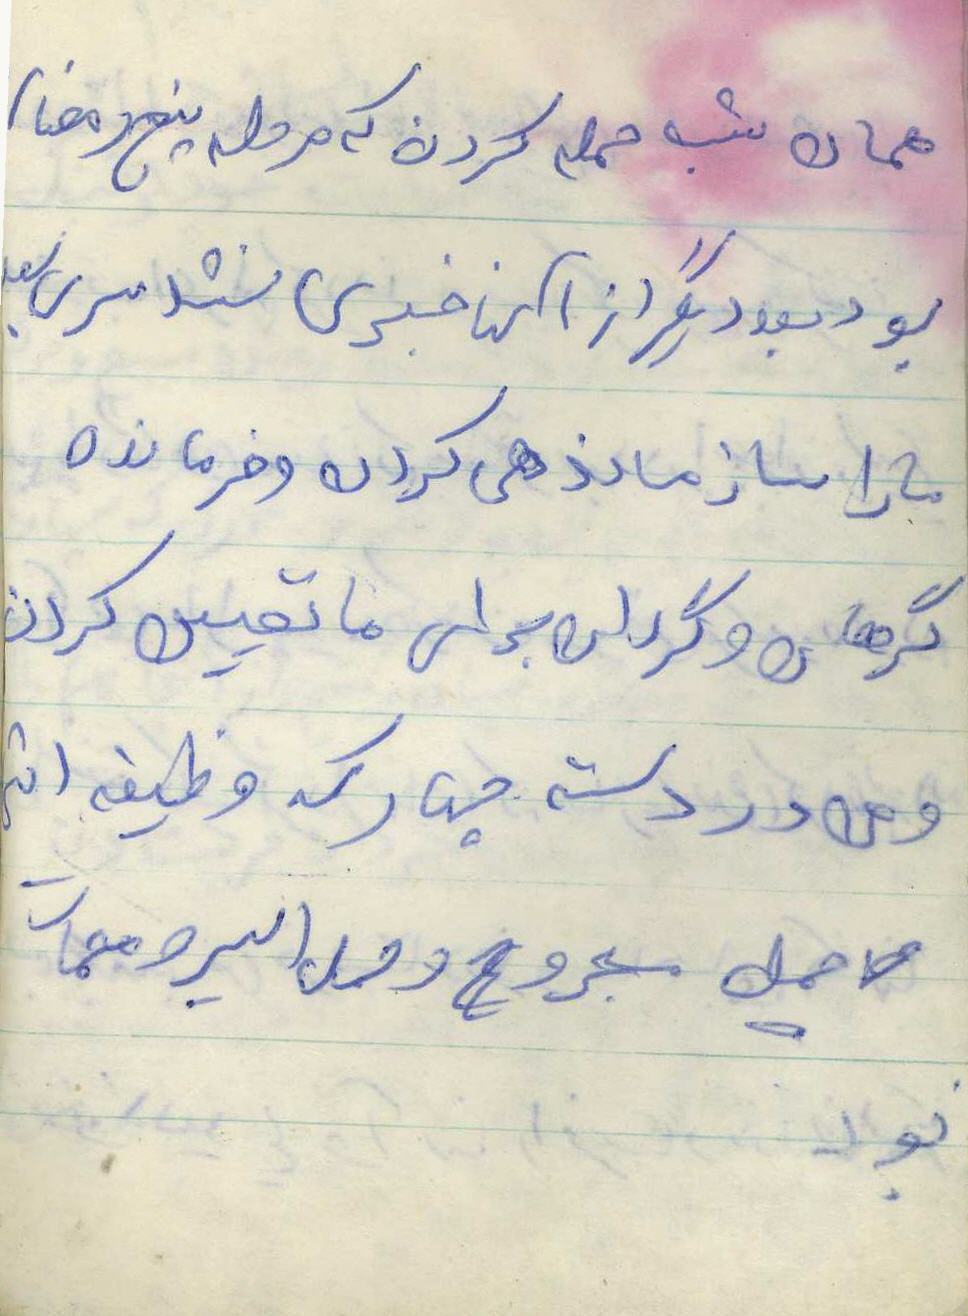 همان شب حمله کردن که مرحله پنج رمضان
بود و بعد دیگر از آنها خبری نشد سری بعد
ما را سازماندهی کردن و فرمانده
گرهان و گردان برای ما تعیین کردن
و من در دسته چهار که وظیفه اش
حمل مجروح و حمل اسیر و مهمات
بود